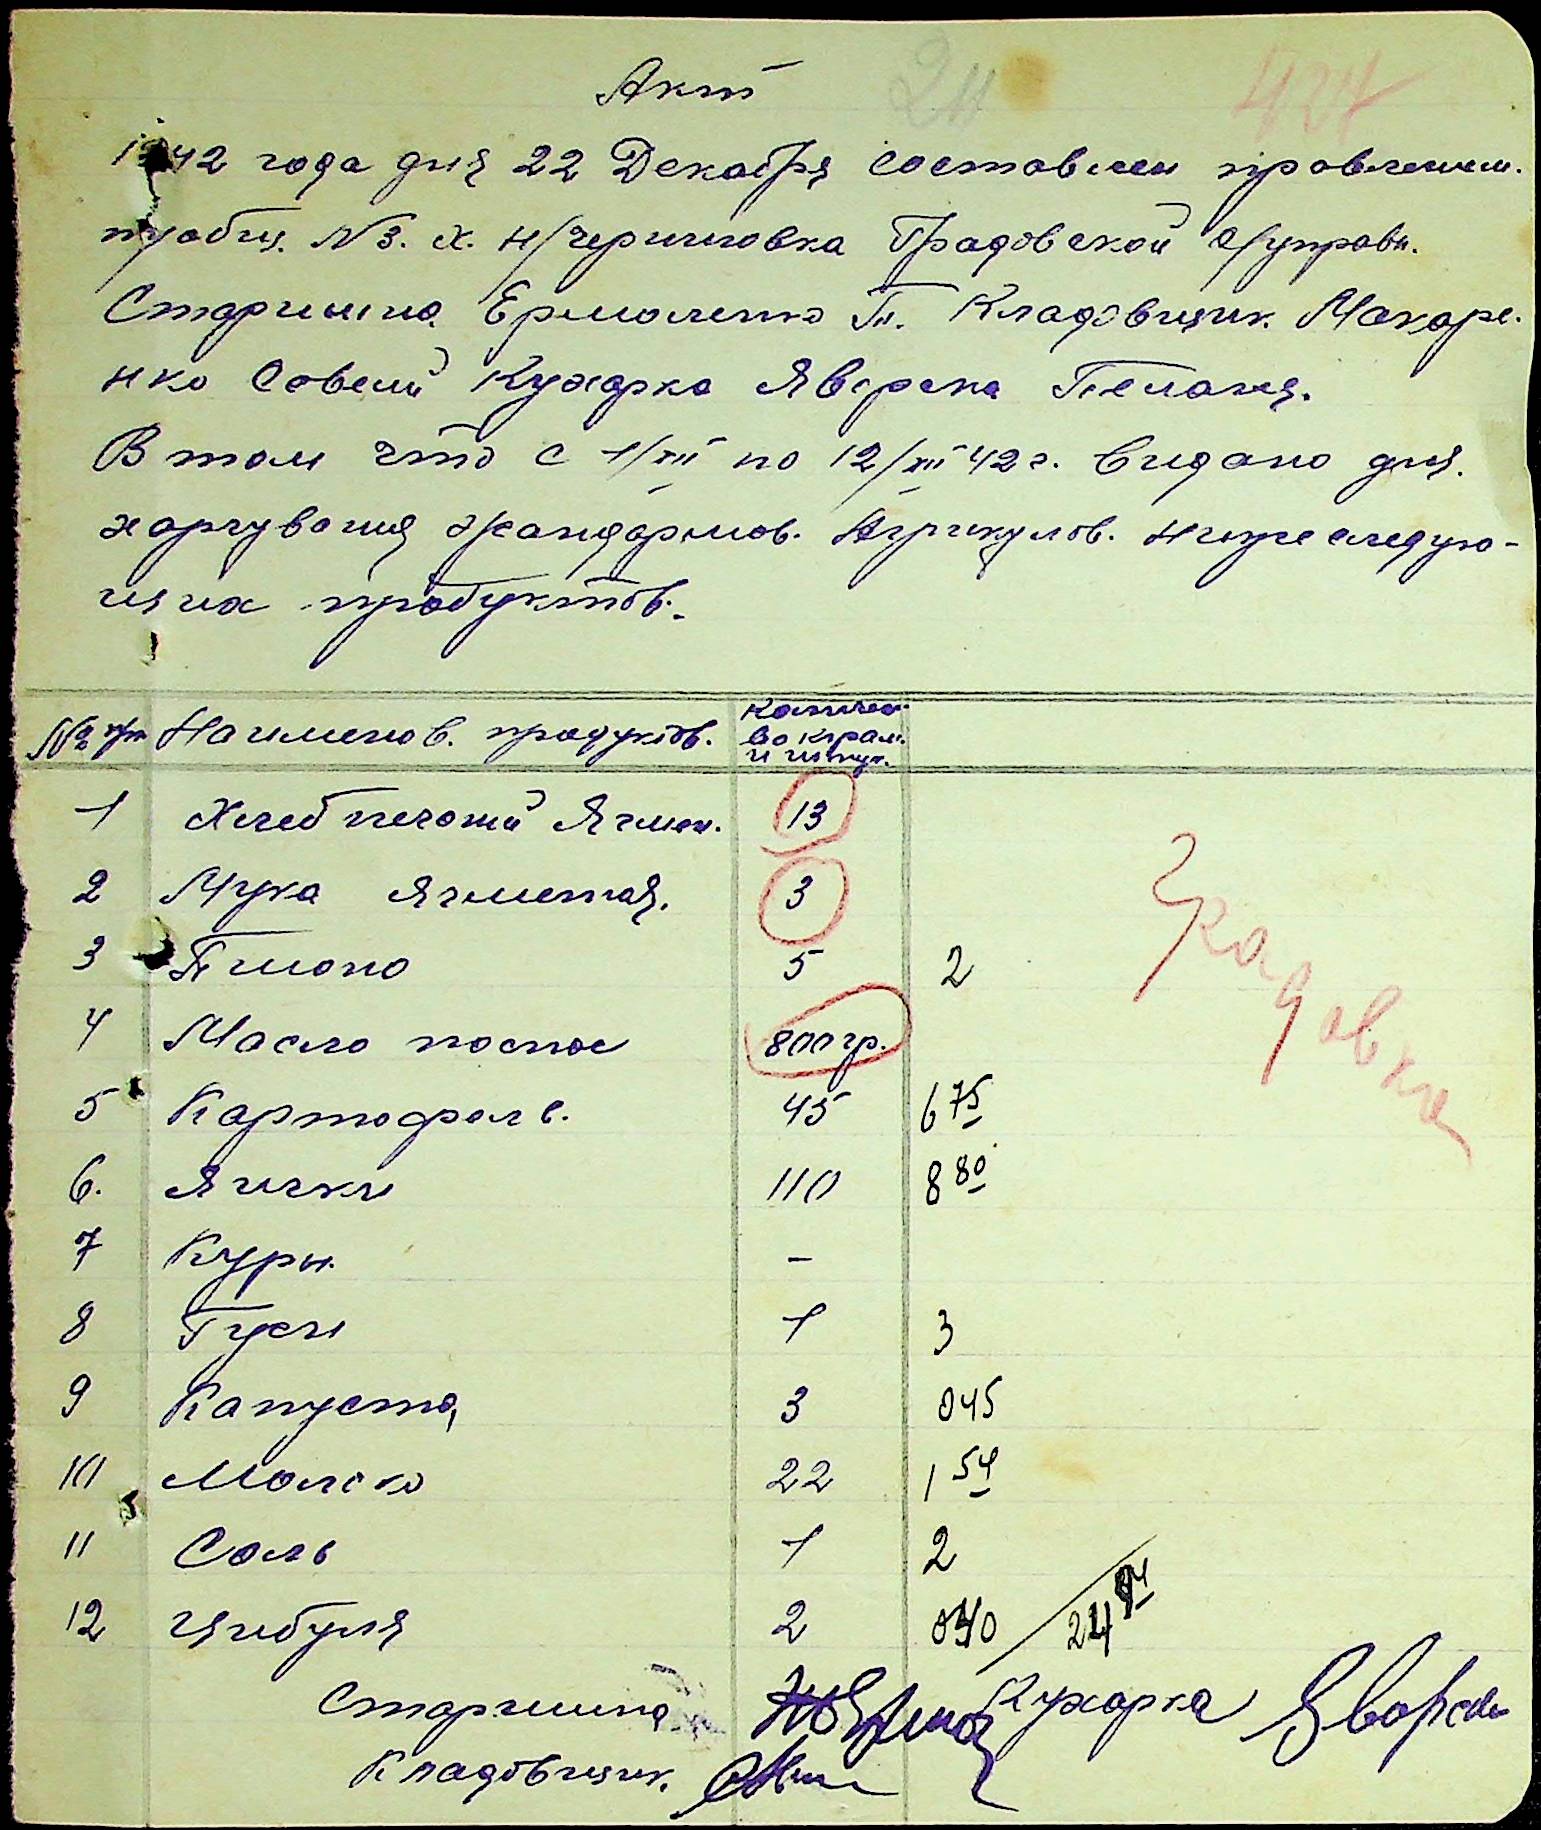 Акт
1942 года дня 22 Декабря составлен провлением.
общ. № 3. х. Н/Черниговка Градовской с/управи.
Старшина Ермоленко П. Кладовщик. Макаре-
нко Совелий Кухарка Яворска Пелагия.
В том что с 1/XII по 12/XII 42 г. Видано для.
харчування жандармов. Агрикулов. нижеследую-
щих продуктов.
№ п/п Наименов. продуктов. Количес. во кграм. и штук.
1 Хлеб печоний Ячмен. 13
2 Мука Ячменная. 3
3 Пшоно 5 2
4 Масло посное 800 гр.
5 Картофель. 45 6 75
6. Яички 110 8 80
7 Куры. –
8 Гуси 1 3
9 Капуста 3 0 45
10 Молоко 22 1 54
11 Соль 1 2
12 Цибуля 2 0 40
Старшина Кухарка Яворска
Кладовщик.